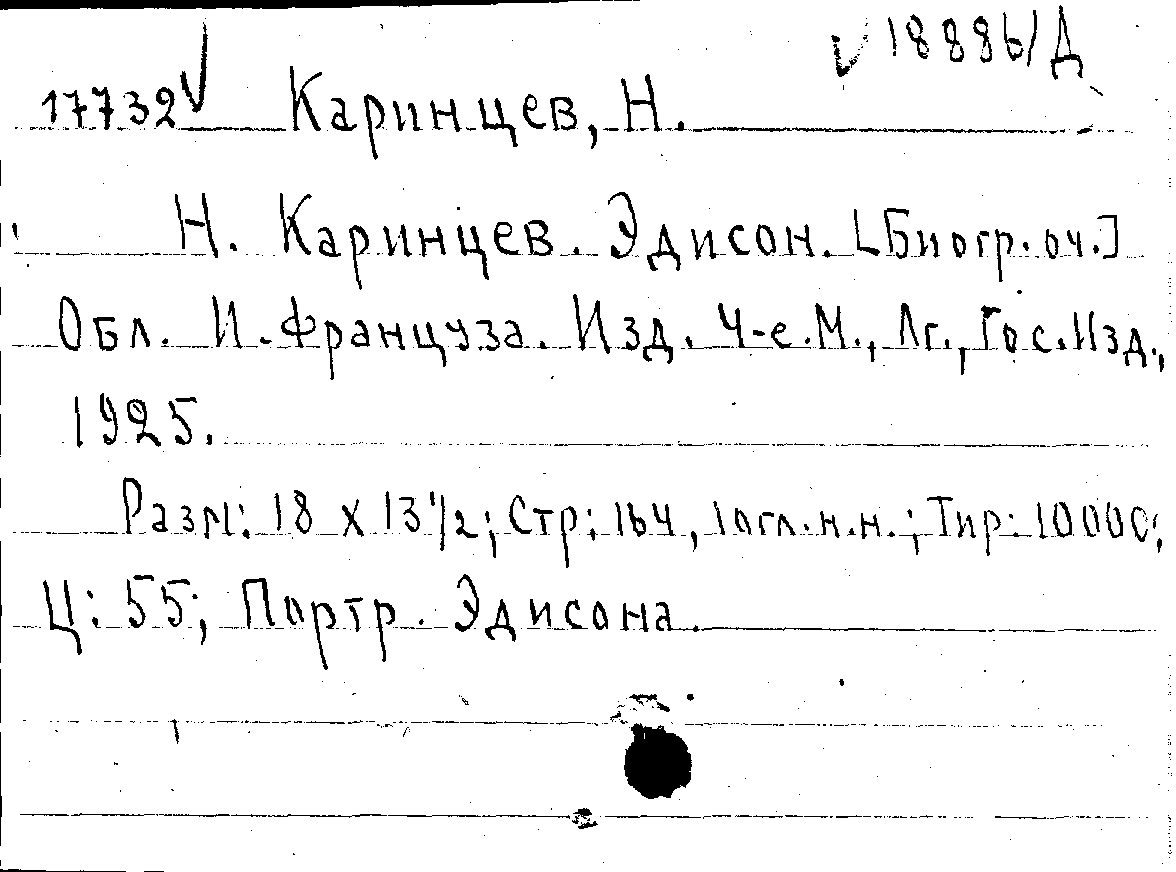 17732 √ Каринцев, Н. √ 18886/Д
Н. Каринцев. Эдисон. [Биогр. оч.]
Обл. И. Француза. Изд. 4-е. М., Лг., Гос. Изд.,
1925.
Разм: 18 х 13 1/2; Стр: 164, 1 огл. н. н.; Тир: 10000;
Ц: 55; Портр. Эдисона.